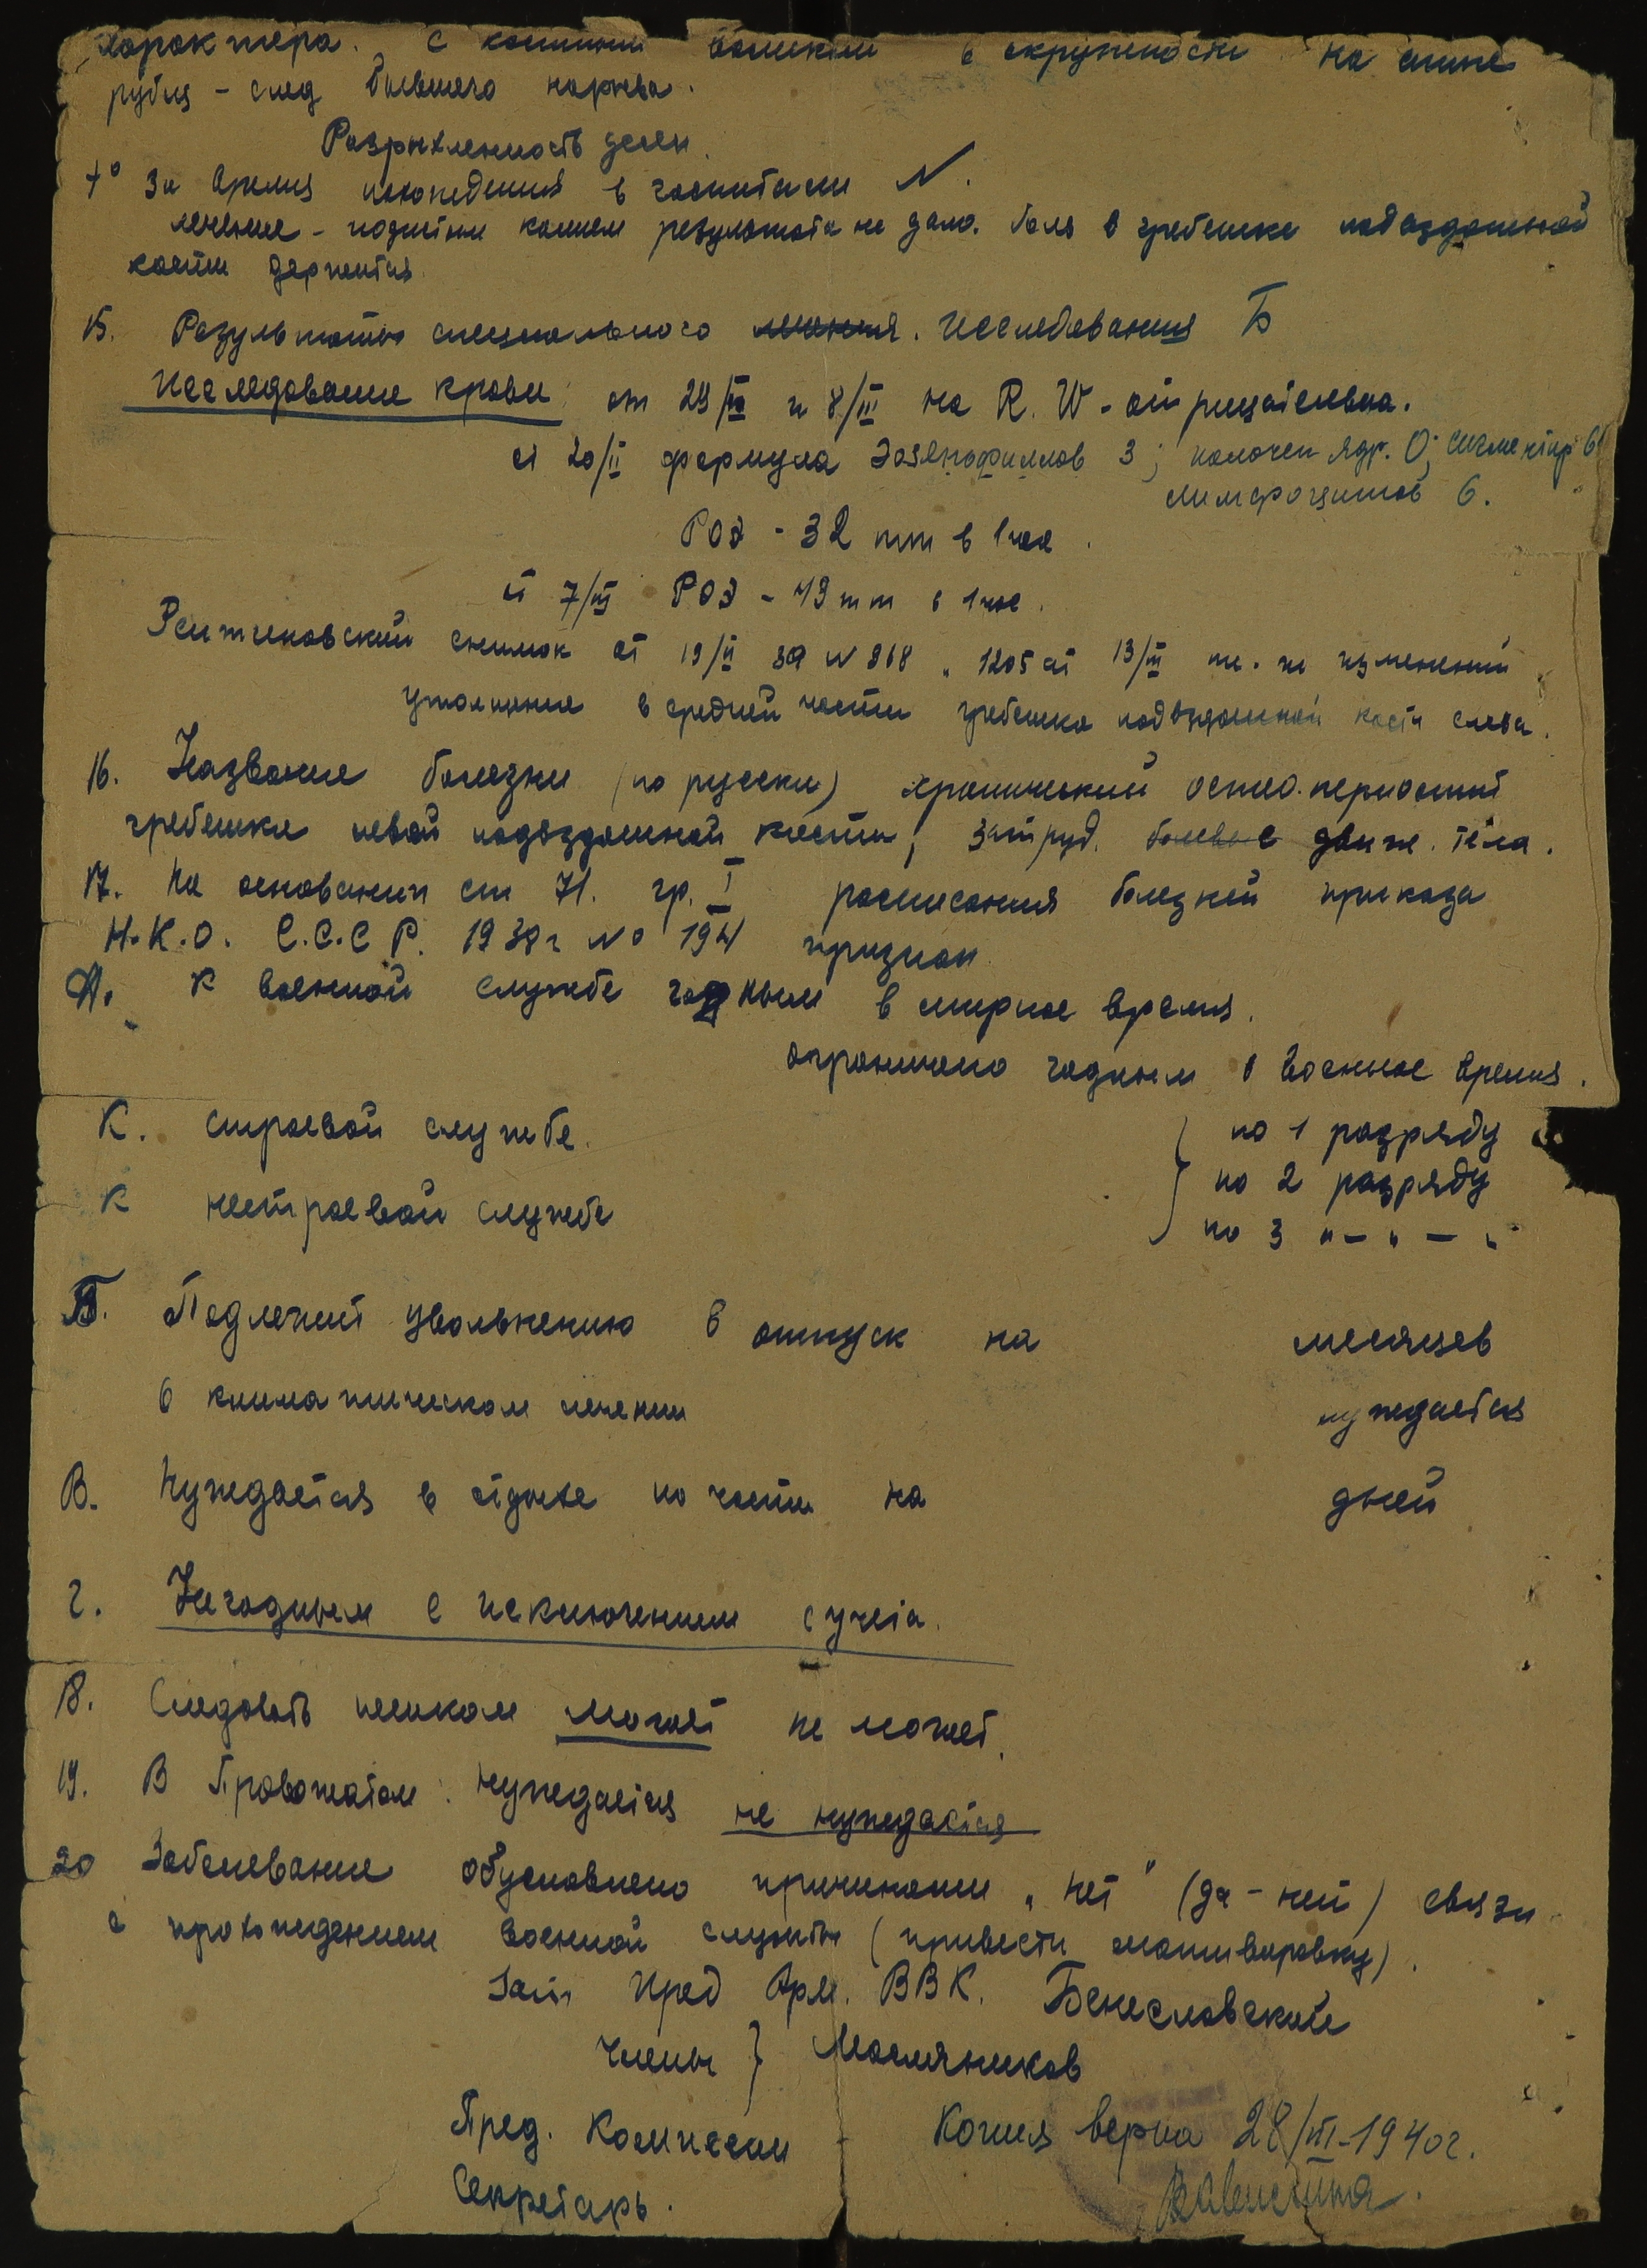 характера. с костным валиком в окружности на спине
рубец - след бывшего нарыва.
Разрыхленность десен.
t° За время нахождения в госпитале N.
лечение - йодистым калием результата не дало. боль в гребешке подвздошной
кости держится.
15. Результаты специального лечения. исследования Б
Исследование крови: от 29/II и 8/III на R. W - отрицательна.
от 20/II формула Эозенофиллов 3; палочек ядр. 0; сигментир 6
лимфоцитов 6.
РОЭ - 32 mm в 1 час.
от 7/III РОЭ - 49 mm в 1 час.
Рентгеновский снимок от 19/II за N 868 " 1205 от 13/III изменений
утолщение в средней части гребешка подвздошной кости слева.
16. Название болезни (по русски) хронический остео-периостит
гребешка левой подвздошной кости, затруд. болевые движ. тела.
17. На основании ст 71. гр. I расписания болезней приказа
Н.К.О. С.С.С Р. 1938г N° 194 признан
А. К военной службе годным в мирное время.
ограничено годным в военное время.
К. строевой службе. по 1 разряду
по 2 разряду
К нестроевой службе по 3 "-"-"
Б. Подлежит увольнению в отпуск на месяцев
в климатическом лечении нуждается
В. Нуждается в отдыхе по части на дней
Г. Негодным с исключением с учета.
18. Следовать пешком может не может.
19. В провожатом: нуждается не нуждается
20 Заболевание обусловлено причинами "нет" (да - нет) связи
с прохождением военной службы (привести мотивировку).
Зам Пред Арм. ВВК. Бенеславский
Члены } Масляников
Пред. Комиссии - Копия верна 28/III-1940г.
Секретарь.